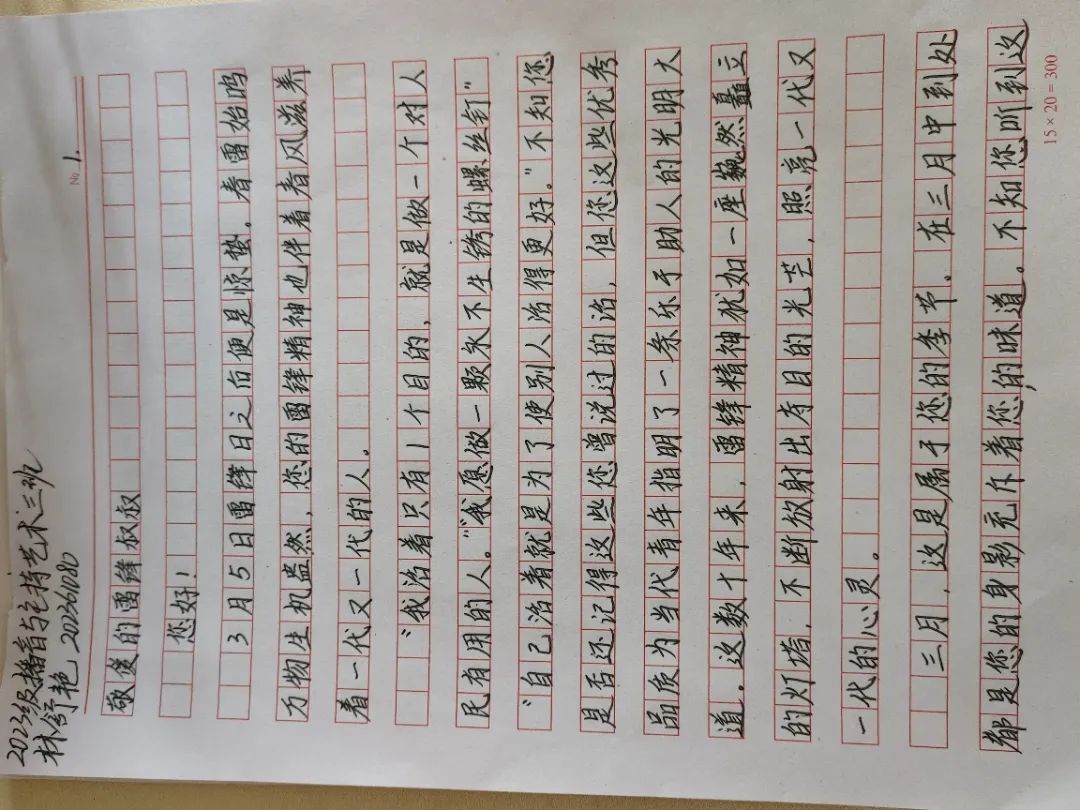 2023级播音与主持艺术三班
林舒艳 202361080
No. 1.
敬爱的雷锋叔叔
您好!
3月5日雷锋日之后便是惊蛰。春雷始鸣
万物生机盎然,您的雷锋精神也伴着春风滋养
着一代又一代的人。
“我活着只有1个目的,就是做一个对人
民有用的人。”“我愿做一颗永不生锈的螺丝钉”
“自己活着就是为了使别人活得更好。”不知您
是否还记得这些您曾说过的话,但您这些优秀
品质为当代青年指明了一条乐于助人的光明大
道。这数十年来,雷锋精神犹如一座巍然矗立
的灯塔,不断放射出夺目的光芒,照亮一代又
一代的心灵。
三月,这是属于您的季节。在三月中到处
都是您的身影充斥着您的味道。不知您听到这
15×20=300